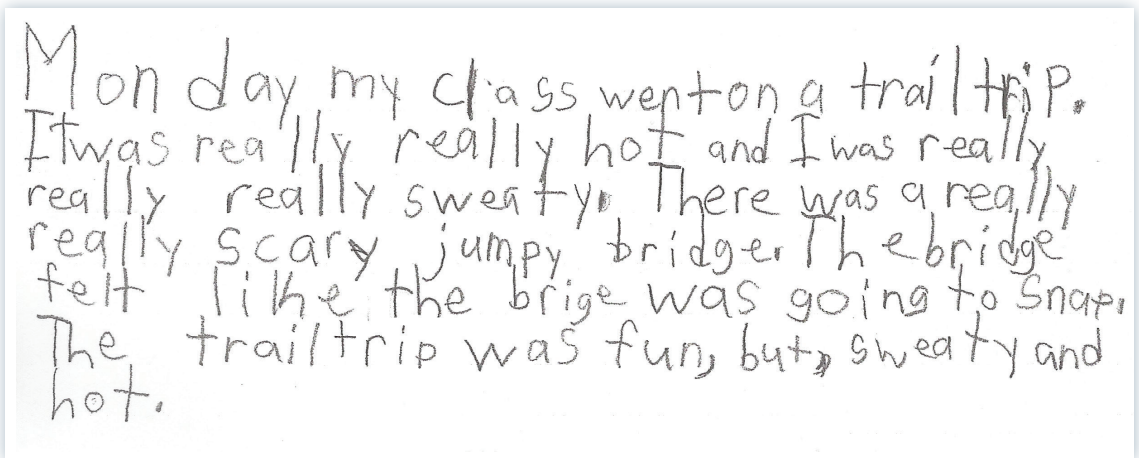 Monday my class went on a trail trip.
It was really really hot and I was really
really really sweaty. There was a really
really scary jumpy bridge. The bridge
felt like the brige was going to snap.
The trail trip was fun, but, sweaty and
hot.